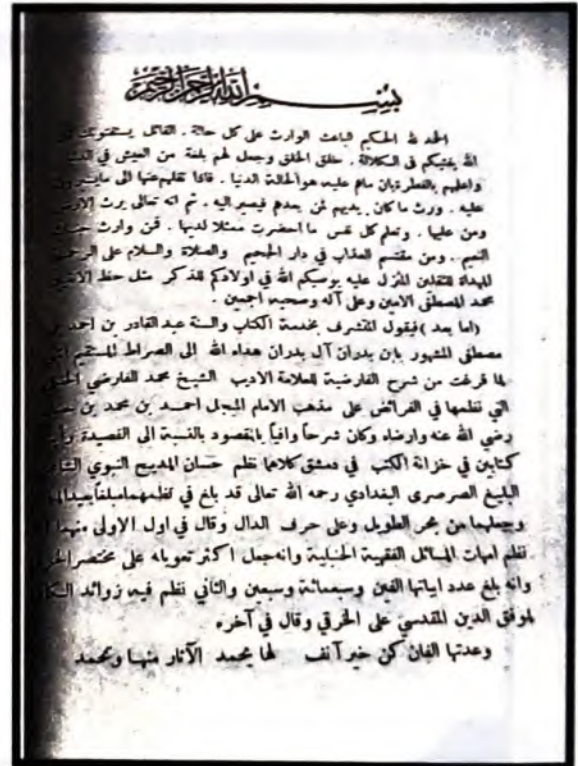 بسم الله الرحمن الرحيم
الحمد لله الحكيم الباعث الوارث على كل حالة . القائل يستفتونك قل
الله يفتيكم في الكلالة . خلق الخلق وجعل لهم بلغة من العيش في الدنيا
واعلمهم بالفطرة بان ماهم عليه هو الحالة الدنيا . فاذا نقلهم عنها الى مايسيرون
عليه . ورث ما كان بيديهم لمن بعدهم فيصير اليه . ثم انه تعالى يرث الارض
ومن عليها . وتعلم كل نفس ما احضرت ممثلا لديها . فمن وارث جنات
النعيم . ومن مقتسم العذاب في دار الجحيم والصلاة والسلام على الرحمة
المهداة للثقلين المنزل عليه يوصيكم الله في اولادكم للذكر مثل حظ الانثيين
محمد المصطفى الامين وعلى آله وصحبه اجمعين .
(اما بعد) فيقول المتشرف بخدمة الكتاب والسنة عبد القادر بن احمد بن
مصطفى المشهور بابن بدران آل بدران هداه الله الى الصراط المستقيم
لما فرغت من شرح الفارضية للعلامة الاديب الشيخ محمد الفارضي الحنبلي
التي نظمها في الفرائض على مذهب الامام المبجل احمد بن محمد بن حنبل
رضي الله عنه وارضاه وكان شرحاً وافياً بالمقصود بالنسبة الى القصيدة
كتابين في خزانة الكتب في دمشق كلاهما نظم حسان المديح النبوي
البليغ الصرصري البغدادي رحمه الله تعالى قد بلغ في نظمهما مبلغاً
وجعلهما من بحر الطويل وعلى حرف الدال وقال في اول الاولى منهما
نظم امهات المسائل الفقهية الحنبلية وانه جعل اكثر تعويله على مختصر
وانه بلغ عدد ابياتها الفين وسبعمائة وسبعين والثاني نظم فيه زوائد
لموفق الدين المقدسي على الخرقي وقال في آخره
وعدتها الفان كن خير آنف لها بمحمد الآثار منها ومحمد